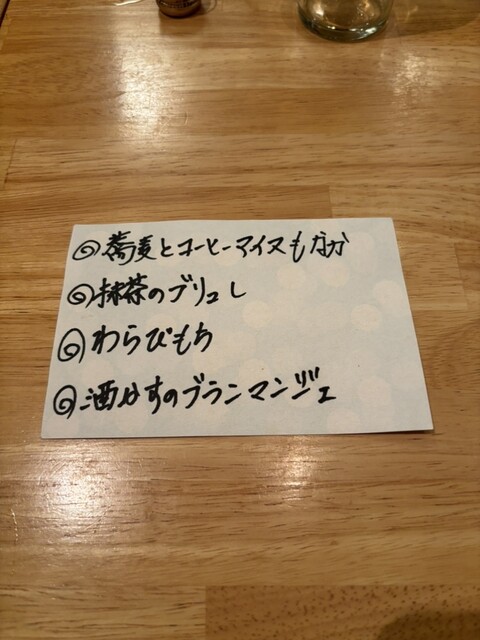 ◎蕎麦とコーヒーアイスもなか
◎抹茶のブリュレ
◎わらびもち
◎酒かすのブランマンジェ